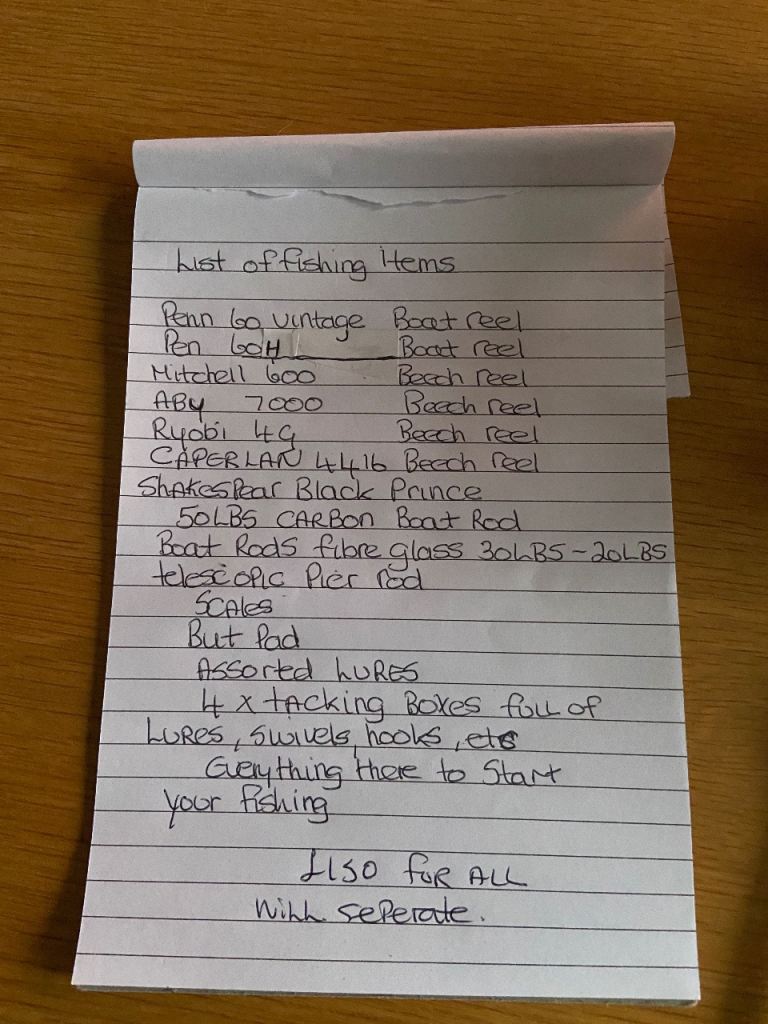 List of fishing items
Penn 60 vintage Boat reel
Pen 60H Boat reel
Mitchell 600 Beech reel
ABY 7000 Beech reel
Ryobi 4G Beech reel
CAPERLAN 4416 Beech reel
Shakespear Black Prince
50LBS CARBON Boat Rod
Boat Rods fibre glass 30LBS - 20LBS
telescopic Pier rod
SCAles
But Pad
Assorted LURES
4 x tacking Boxes full of
LURES, swivels, hooks, etc
Everything there to Start
your fishing
£150 for ALL
Will seperate.